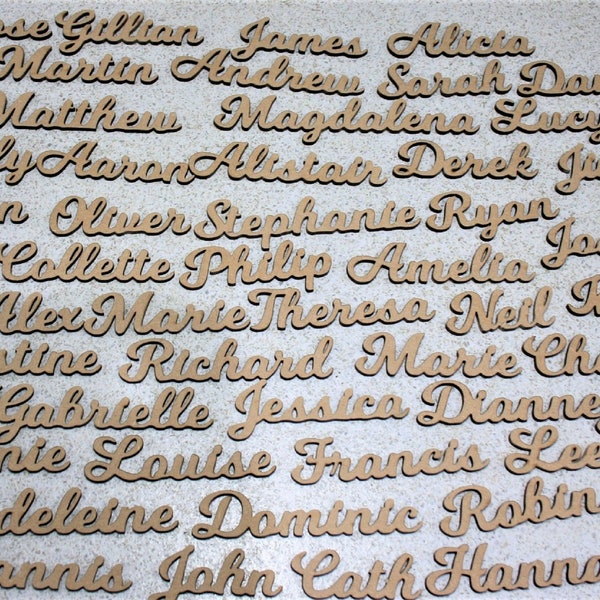 ose Gillian James Alicia
Martin Andrew Sarah Dav
Matthew Magdalena Lucy
ly Aaron Alistair Derek Ju
n Oliver Stephanie Ryan
Collette Philip Amelia Jo
Alex Marie Theresa Neil R
stine Richard Marie Ch
Gabrielle Jessica Dianne
nie Louise Francis Lee
deleine Dominic Robin
annis John Cath Hanna